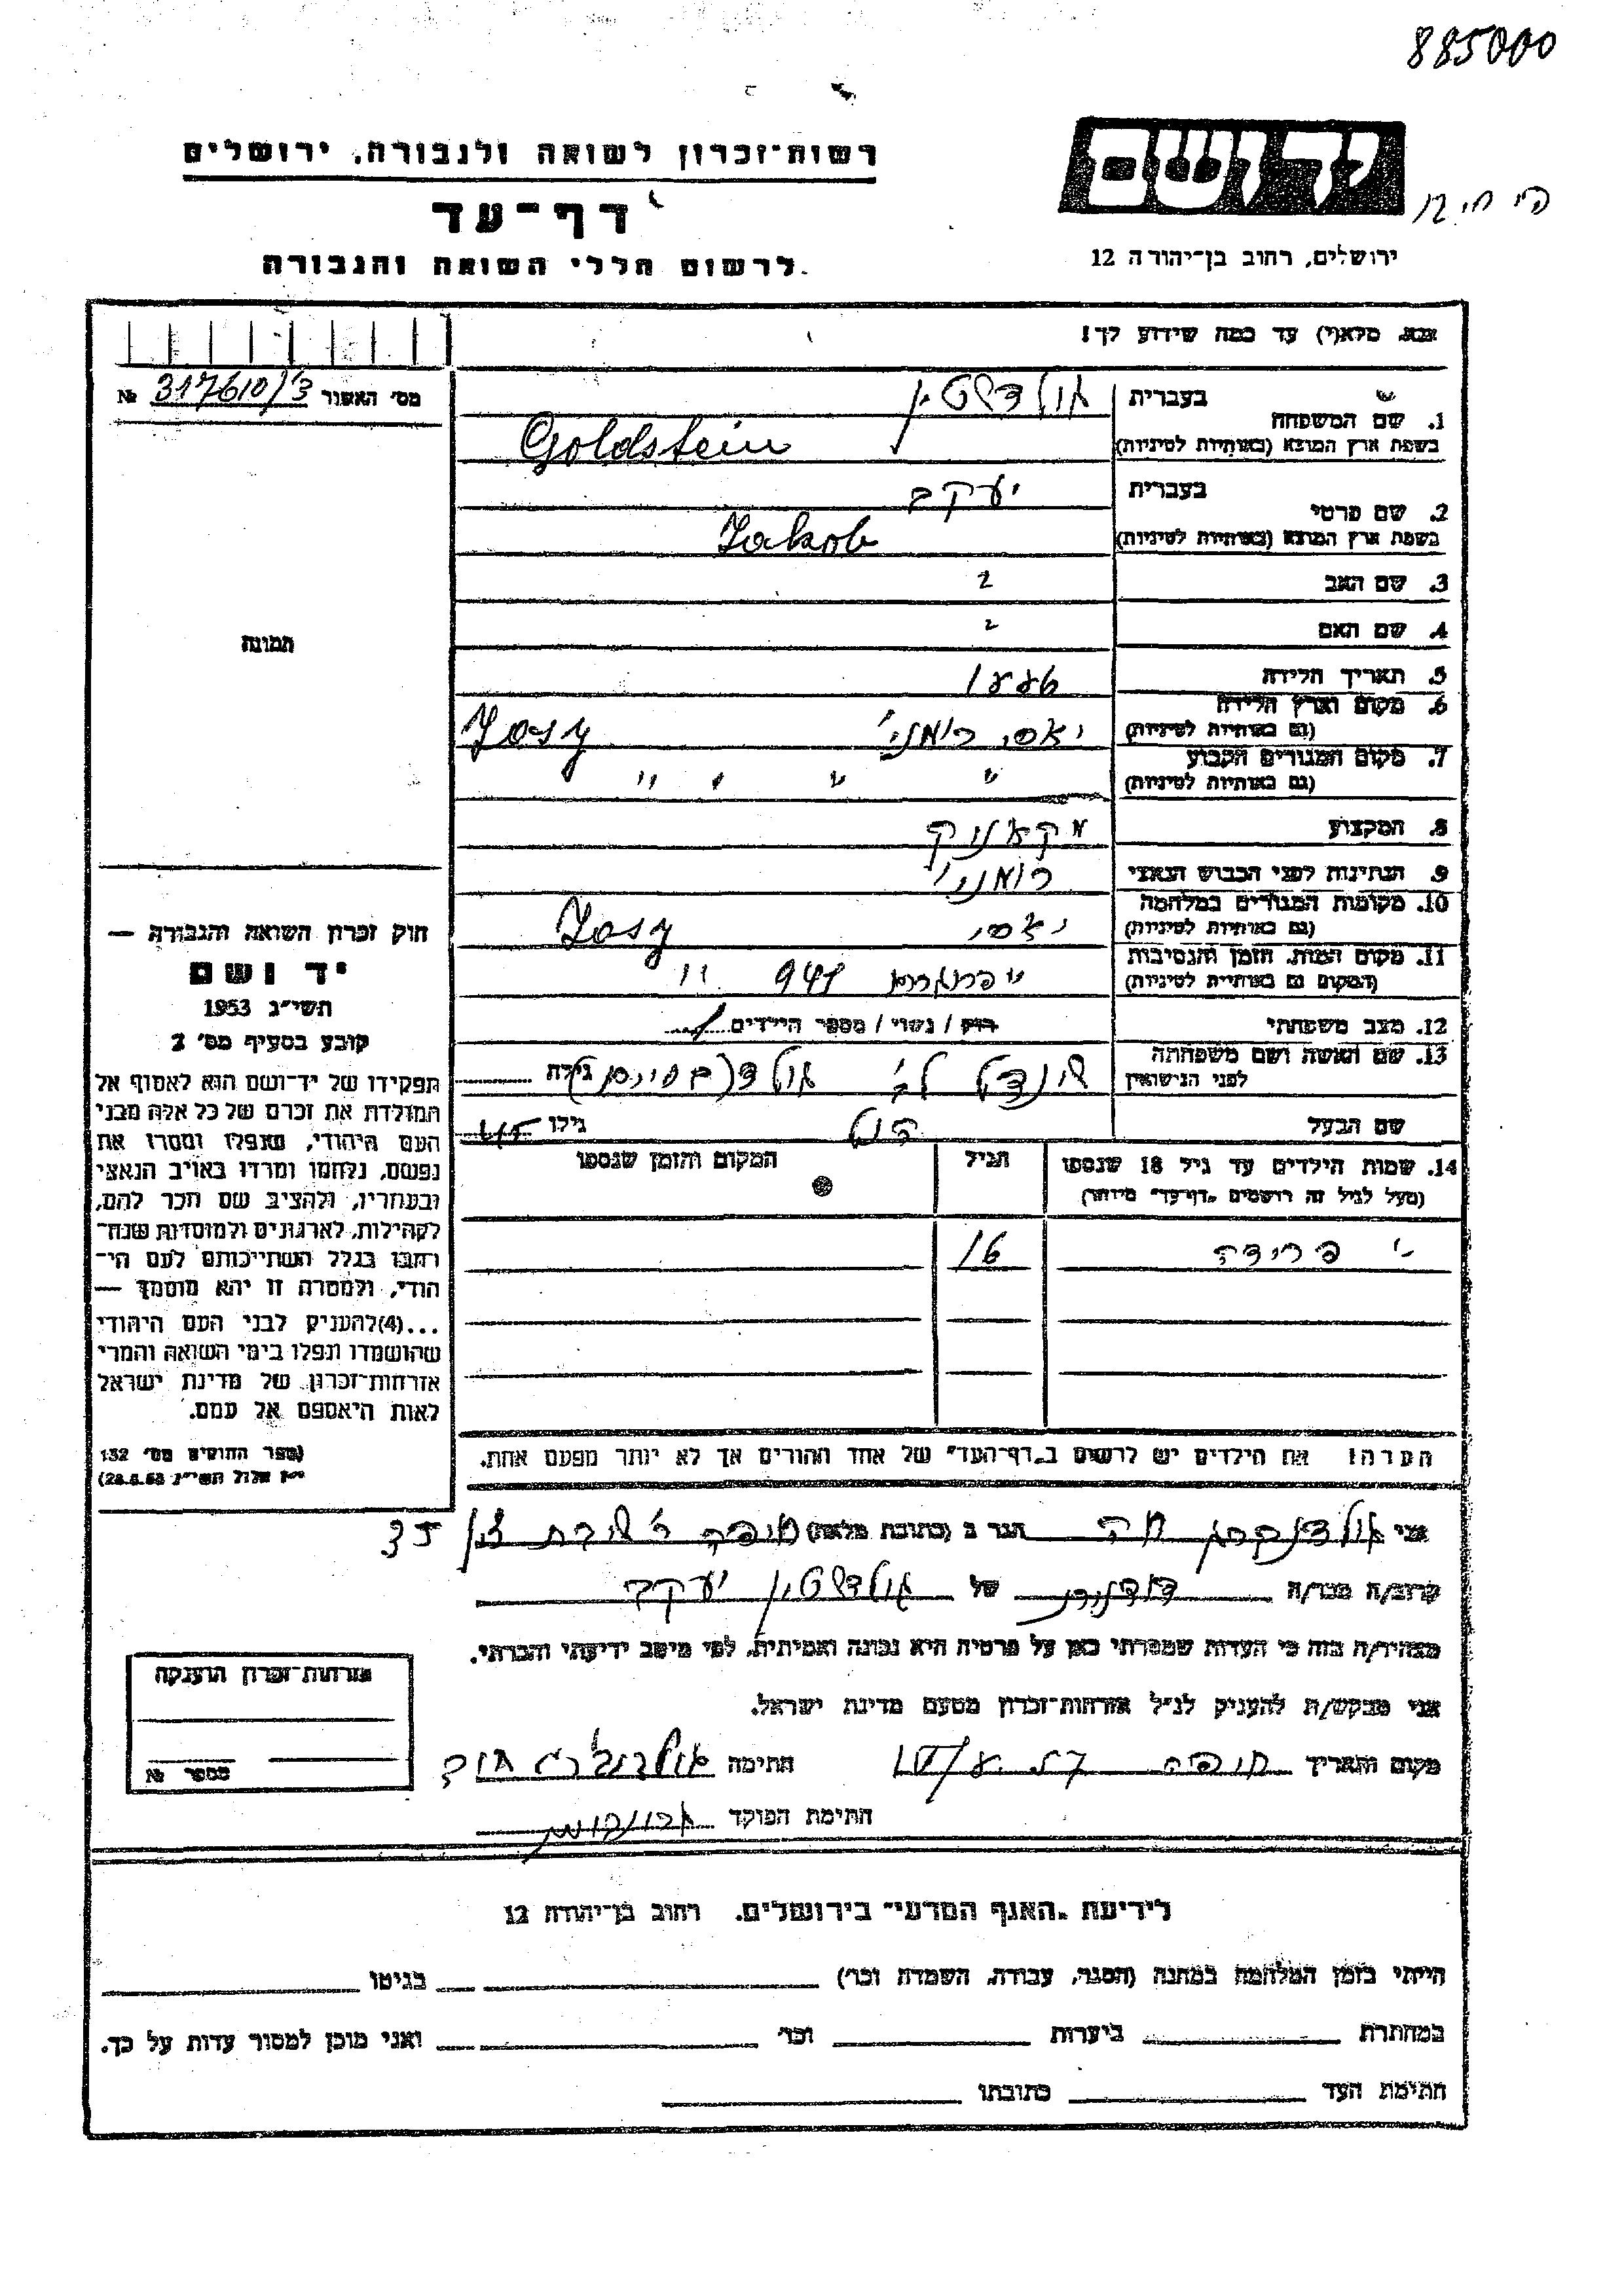 885000
רשות־זכרון לשואה ולגבורה, ירושלים
דף־עד
לרשום חללי השואה והגבורה
יד ושם
ירושלים, רחוב בן־יהודה 12
אנא, מלא(י) עד כמה שידוע לך!
מס׳ האשור 317610/3 №
תמונה
1. שם המשפחה
בעברית גולדשטין
בשפת ארץ המוצא (באותיות לטיניות) Goldstein
2. שם פרטי
בעברית יעקב
בשפת ארץ המוצא (באותיות לטיניות) Jakob
3. שם האב
4. שם האם
5. תאריך הלידה
6. מקום וארץ הלידה
(גם באותיות לטיניות) יאסי רומני׳ Yosy
7. מקום המגורים הקבוע
(גם באותיות לטיניות) " " " "
8. המקצוע
9. הנתינות לפני הכבוש הנאצי רומני׳
10. מקומות המגורים במלחמה
(גם באותיות לטיניות) יאסי Yosy
11. מקום המות, הזמן והנסיבות
(המקום גם באותיות לטיניות) 941
12. מצב משפחתי רוק / נשוי / מספר הילדים
13. שם האשה ושם משפחתה
לפני הנישואין גילה
שם הבעל גילו
14. שמות הילדים עד גיל 18 שנספו
(מעל לגיל זה רושמים „דף־עד" מיוחד)
הגיל
המקום והזמן שנספו
פרידה 16
הערה! את הילדים יש לרשום ב„דף־העד" של אחד ההורים אך לא יותר מפעם אחת.
חוק זכרון השואה והגבורה —
יד ושם
תשי״ג 1953
קובע בסעיף מס׳ 2
תפקידו של יד־ושם הוא לאסוף אל
המולדת את זכרם של כל אלה מבני
העם היהודי, שנפלו ומסרו את
נפשם, נלחמו ומרדו באויב הנאצי
ובעוזריו, ולהציב שם וזכר להם,
לקהילות, לארגונים ולמוסדות שנח־
רבו בגלל השתייכותם לעם הי־
הודי, ולמטרה זו יהא מוסמך —
...(4) להעניק לבני העם היהודי
שהושמדו ונפלו בימי השואה והמרי
אזרחות־זכרון של מדינת ישראל
לאות היאספם אל עמם.
(ספר החוקים מס׳ 132
י״ז אלול תשי״ג 28.8.53)
אני הגר ב (כתובת מלאה) 35
קרוב/ה מכר/ה של גולדשטין יעקב
מצהיר/ה בזה כי העדות שמסרתי כאן על פרטיה היא נכונה ואמיתית, לפי מיטב ידיעתי והכרתי.
אני מבקש/ת להעניק לנ״ל אזרחות־זכרון מטעם מדינת ישראל.
מקום ותאריך חיפה חתימה
חתימת הפוקד
אזרחות־זכרון הוענקה
מספר №
לידיעת „האגף המדעי" בירושלים. רחוב בן־יהודה 12
הייתי בזמן המלחמה במחנה (הסגר, עבודה, השמדה וכו׳) בגיטו
במחתרת ביערות וכו׳ ואני מוכן למסור עדות על כך.
חתימת העד כתובתו